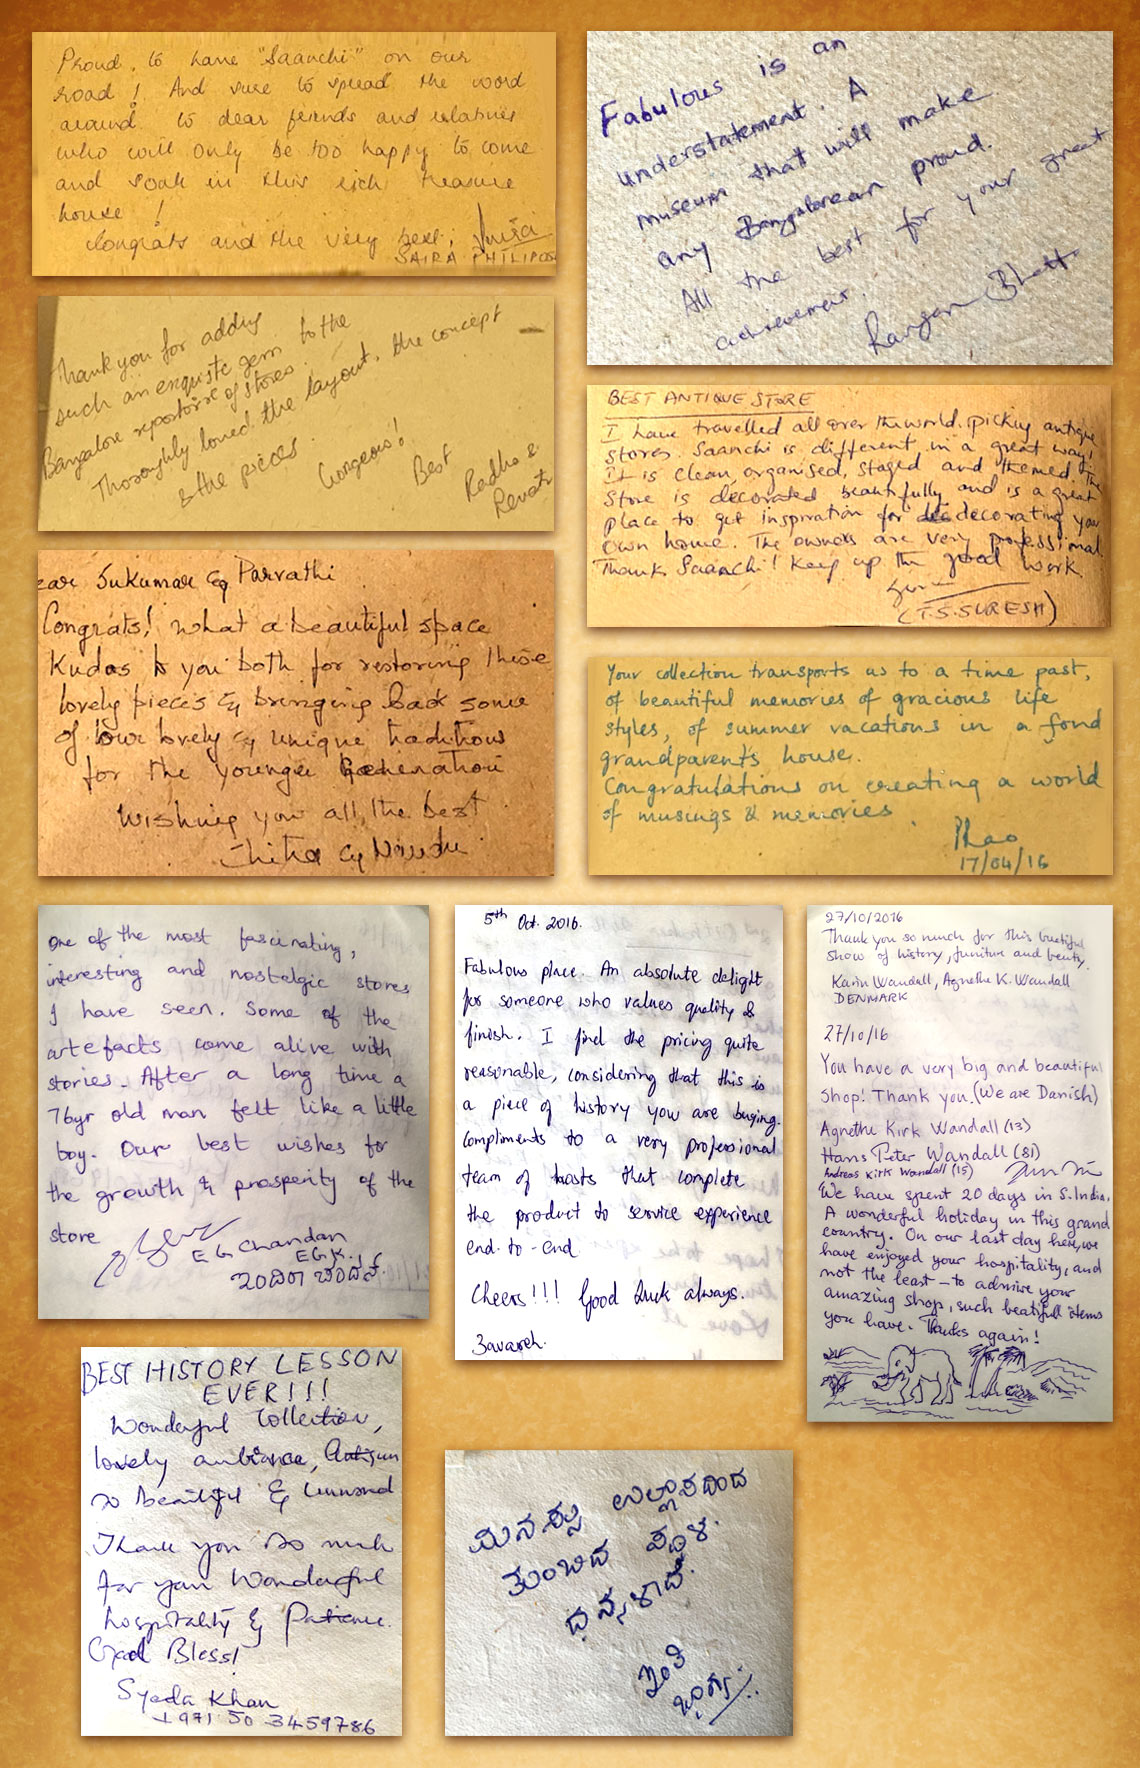 Proud, to have "Saanchi" on our
road! And sure to spread the word
around to dear friends and relatives
who will only be too happy to come
and soak in this rich treasure
house!
Congrats and the very best,
SAIRA PHILIPOSE
Fabulous is an
understatement. A
museum that will make
any Bangalorean proud.
All the best for your great
achievement.
Ranjan Bhatt
Thank you for adding
such an exquiste gem to the
Bangalore repertoire of stores.
Thoroughly loved the layout, the concept
& the pieces. Gorgeous!
Best
Radha &
Revati
BEST ANTIQUE STORE
I have travelled all over the world picking antique
stores. Saanchi is different in a great way!
It is clean, organised, staged and themed. The
store is decorated beautifully and is a great
place to get inspiration for decorating your
own home. The owners are very professional.
Thanks Saanchi! Keep up the good work.
(T.S.SURESH)
ear Sukumar & Parvathi
Congrats! what a beautiful space
Kudos to you both for restoring these
lovely pieces & bringing back some
of our lovely & unique traditions
for the younger Generation
Wishing you all the best
Chitra &
Your collection transports us to a time past,
of beautiful memories of gracious life
styles, of summer vacations in a fond
grandparents house.
Congratulations on creating a world
of musings & memories.
PRao
17/04/16
One of the most fascinating,
interesting and nostalgic stores
I have seen. Some of the
artefacts come alive with
stories. After a long time a
76yr old man felt like a little
boy. Our best wishes for
the growth & prosperity of the
store
E G Chandan
EGK
ಇಂದಿರಾ ಚಂದನ್.
5th Oct. 2016.
Fabulous place. An absolute delight
for someone who values quality &
finish. I find the pricing quite
reasonable, considering that this is
a piece of history you are buying.
Compliments to a very professional
team of hosts that complete
the product to service experience
end-to-end
Cheers!!! Good Luck always.
Zavareh.
27/10/2016
Thank you so much for this beutiful
show of history, funiture and beuty.
Karin Wandall, Agnethe K. Wandall
DENMARK
27/10/16
You have a very big and beautiful
Shop! Thank you. (We are Danish)
Agnethe Kirk Wandall (13)
Hans Peter Wandall (81)
Andreas Kirk Wandall (15)
We have spent 20 days in S. India.
A wonderful holiday in this grand
country. On our last day here, we
have enjoyed your hospitality, and
not the least - to admire your
amazing shop, such beatifull items
you have. Thanks again!
BEST HISTORY LESSON
EVER!!!
Wonderful Collection,
lovely ambiance,
so beautiful &
Thank you so much
for your Wonderful
hospitality & Patience.
God Bless!
Syeda Khan
+971 50 3459786
ಮನಸ್ಸು ಉಲ್ಲಾಸದಿಂದ
ತುಂಬಿದ ಸ್ಥಳ.
ಧನ್ಯಳಾದೆ.
ಇಂತಿ